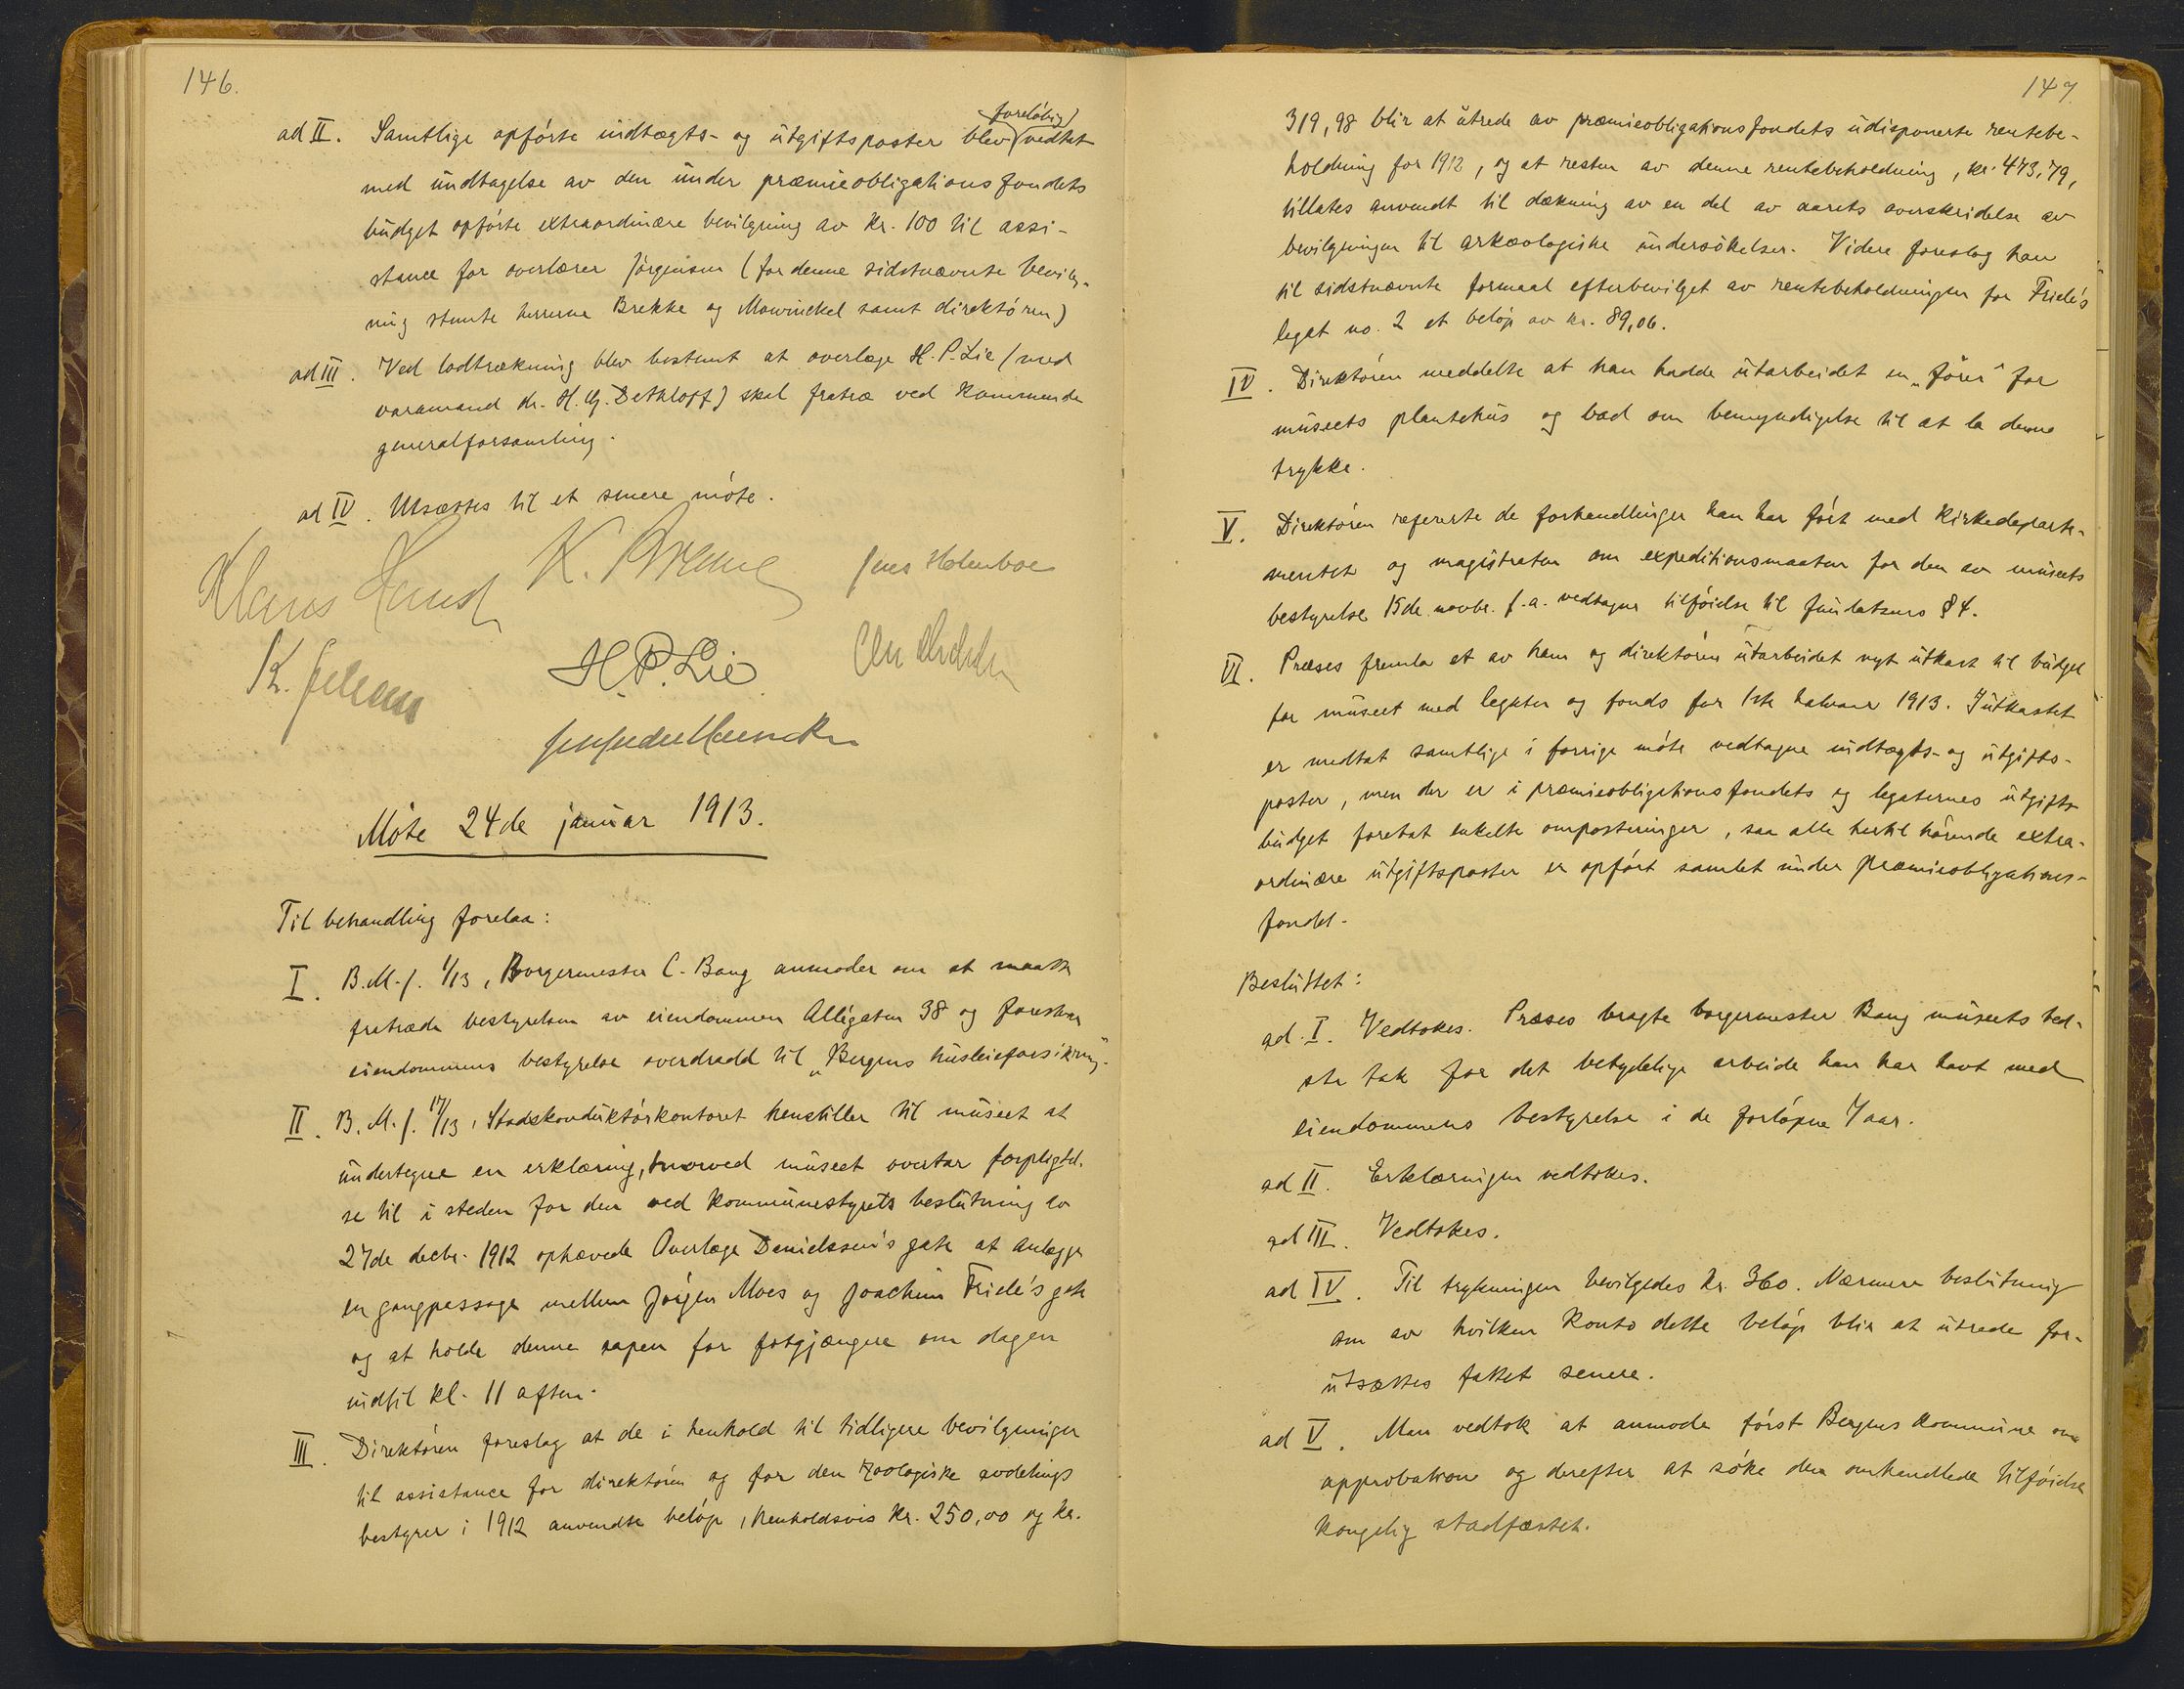 146.
ad II. Samtlige opførte indtægts- og utgiftsposter blev foreløbig vedtat
med undtagelse av den under præmieobligationsfondets
budget opførte extraordinære bevilgning av kr. 100 til assi-
stance for overlærer Jørgensen (for denne sidstnævnte bevilg-
ning stemte herrerne Brekke og Mowinckel samt direktøren)
ad III. Ved lodtrækning blev bestemt at overlæge H. P. Lie (med
varamand dr. H. G. Dethloff) skal fratræ ved kommende
generalforsamling.
ad IV. Utsættes til et senere møte.
Klaus Hanssen K. Brekke Jens Holmboe
H. P. Lie
Møte 24de januar 1913.
Til behandling forelaa:
I. B.M.j. 1/13, Borgermester C. Bang anmoder om at maatte
fratræde bestyrelsen av eiendommen Allégaten 38 og foreslaar
eiendommens bestyrelse overdradd til "Bergens husleieforsikring".
II. B.M.j. 17/13, Stadskonduktørkontoret henstiller til museet at
undertegne en erklæring, hvorved museet overtar forpligtel-
se til i steden for den ved kommunestyrets beslutning av
27de decbr. 1912 ophævede Overlæge Danielssen's gate at anlægge
en gangpassage mellem Jørgen Moes og Joachim Friele's gate
og at holde denne aapen for fotgjængere om dagen
indtil kl. 11 aften.
III. Direktøren foreslog at de i henhold til tidligere bevilgninger
til assistance for direktøren og for den zoologiske avdelings
bestyrer i 1912 anvendte beløp, henholdsvis kr. 250,00 og kr.
147
319,98 blir at utrede av præmieobligationsfondets udisponerte rentebe-
holdning for 1912, og at resten av denne rentebeholdning, kr. 473,79,
tillates anvendt til dækning av en del av aarets overskridelse av
bevilgningen til arkæologiske undersøkelser. Videre foreslog han
til sidstnævnte formaal efterbevilget av rentebeholdningen for Friele's
legat no. 2 et beløp av kr. 89,06.
IV. Direktøren meddelte at han hadde utarbeidet en "fører" for
museets plantehus og bad om bemyndigelse til at la denne
trykke.
V. Direktøren refererte de forhandlinger han har ført med Kirkedeparte-
mentet og magistraten om expeditionsmaaten for den av museets
bestyrelse 15de novbr. f.a. vedtagne tilføielse til fundatsens § 4.
VI. Præses fremla et av ham og direktøren utarbeidet nyt utkast til budget
for museet med legater og fonds for 1ste halvaar 1913. I utkastet
er medtat samtlige i forrige møte vedtagne indtægts- og utgifts-
poster, men der er i præmieobligationsfondets og legaternes utgifts-
budget foretat enkelte omposteringer, saa alle hertil hørende extra-
ordinære utgiftsposter er opført samlet under præmieobligations-
fondet.
Besluttet:
ad. I. Vedtokes. Præses bragte borgermester Bang museets bed-
ste tak for det betydelige arbeide han har havt med
eiendommens bestyrelse i de forløpne 7 aar.
ad II. Erklæringen vedtokes.
ad III. Vedtokes.
ad IV. Til trykningen bevilgedes kr. 360. Nærmere beslutning
om av hvilken konto dette beløp blir at utrede for-
utsættes fattet senere.
ad V. Man vedtok at anmode først Bergens kommune om
approbation og derefter at søke den omhandlede tilføielse
kongelig stadfæstet.